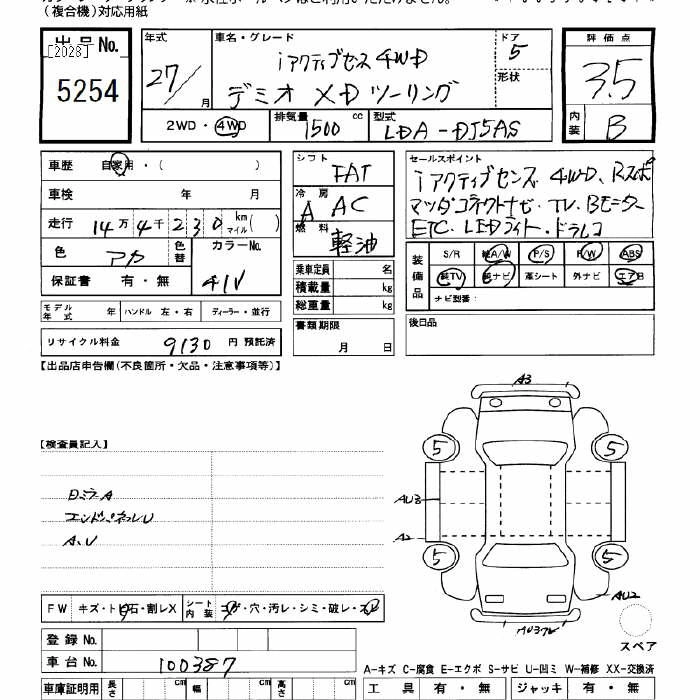 (複合機)対応用紙
出品No.
[2028]
5254
年式
27/
月
車名・グレード
iアクティブセンス 4WD
デミオ XDツーリング
ドア
5
形状
評価点
3.5
内装
B
2WD・4WD
排気量
1500
cc
型式
LDA-DJ5AS
車歴
自家用・(　　　)
車検
年　月
走行
14万4千230
km
マイル
(　)
色
アカ
色替
カラーNo.
41V
保証書
有・無
シフト
FAT
冷房
A AC
燃料
軽油
乗車定員
名
積載量
kg
総重量
kg
書類期限
月　日
セールスポイント
iアクティブセンス、4WD、Rスポ
マツダコネクトナビ・TV、Bモニター
ETC、LEDライト・ドラレコ
装備品
S/R
純A/W
P/S
P/W
ABS
純TV
純ナビ
革シート
外ナビ
エアB
ナビ型番:
後日品
モデル年式
年
ハンドル 左・右
ディーラー・並行
リサイクル料金
9130
円 預託済
【出品店申告欄(不良箇所・欠品・注意事項等)】
【検査員記入】
日ミラA
エンドパネルU
A、U
A3
5
5
AU3
A2
5
5
AU2
スペア
FW
キズ・トビ石・割レX
シート内装
コゲ・穴・汚レ・シミ・破レ・スレ
登録No.
車台No.
100387
車庫証明用
長さ
cm
幅
cm
高さ
cm
A-キズ C-腐食 E-エクボ S-サビ U-凹ミ W-補修 XX-交換済
工具
有・無
ジャッキ
有・無